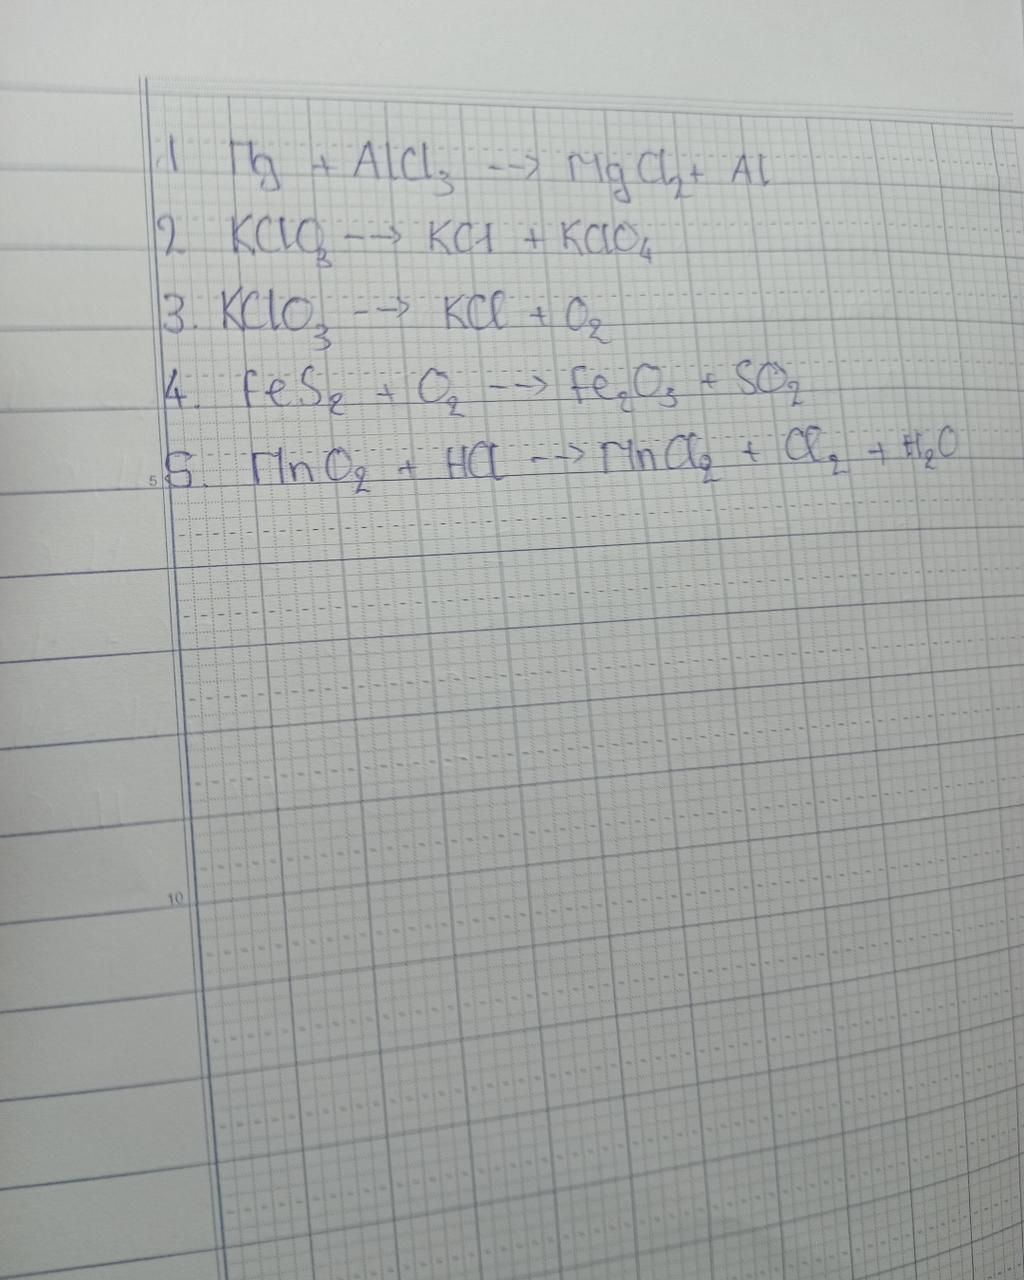 1 Mg + AlCl₃ --> MgCl₂ + Al
2 KClO₃ --> KCl + KClO₄
3. KClO₃ --> KCl + O₂
4. FeS₂ + O₂ --> Fe₂O₃ + SO₂
5 5. MnO₂ + HCl --> MnCl₂ + Cl₂ + H₂O
10